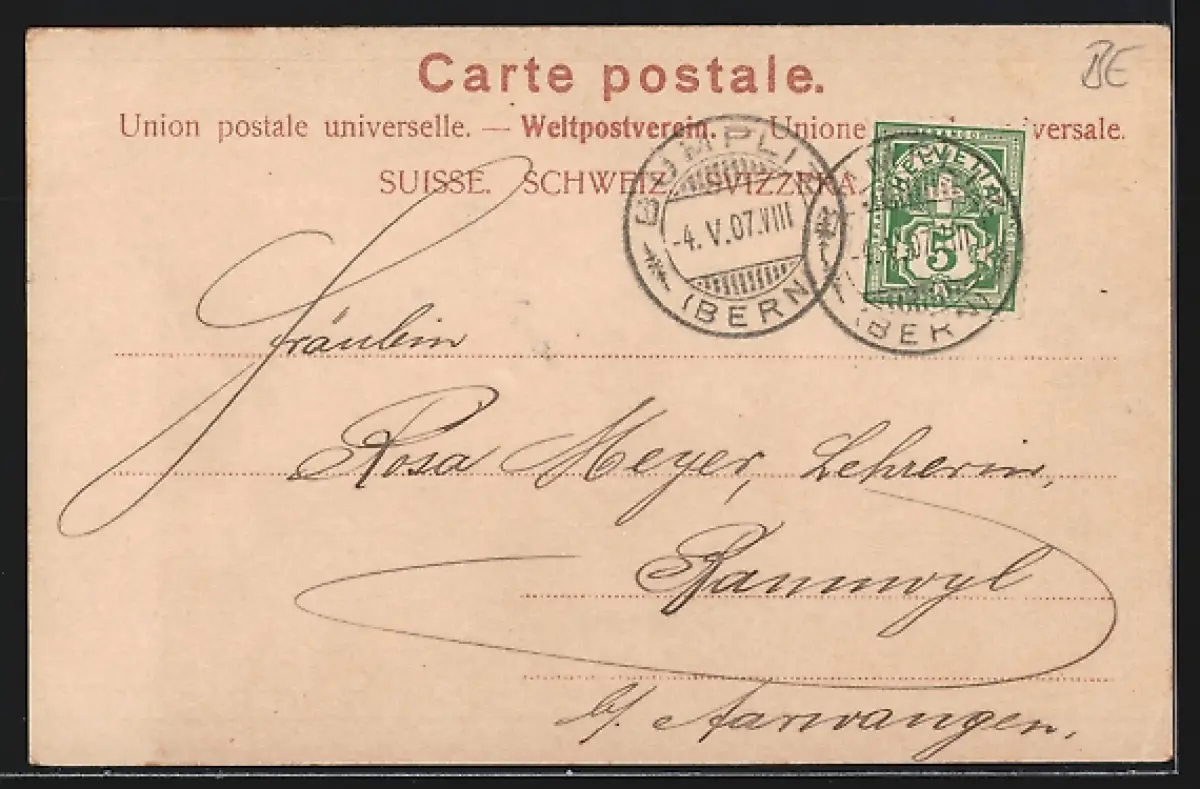 BE
Carte postale.
Union postale universelle. — Weltpostverein. — Unione versale.
SUISSE. SCHWEIZ. SVIZZERA.
BÜMPLIZ
-4. V. 07. VIII
(BERN)
FRANCO
HELVETIA
5
(BERN)
Fräulein
Rosa Meyer, Lehrerin,
Bannwyl
b/ Aarwangen.